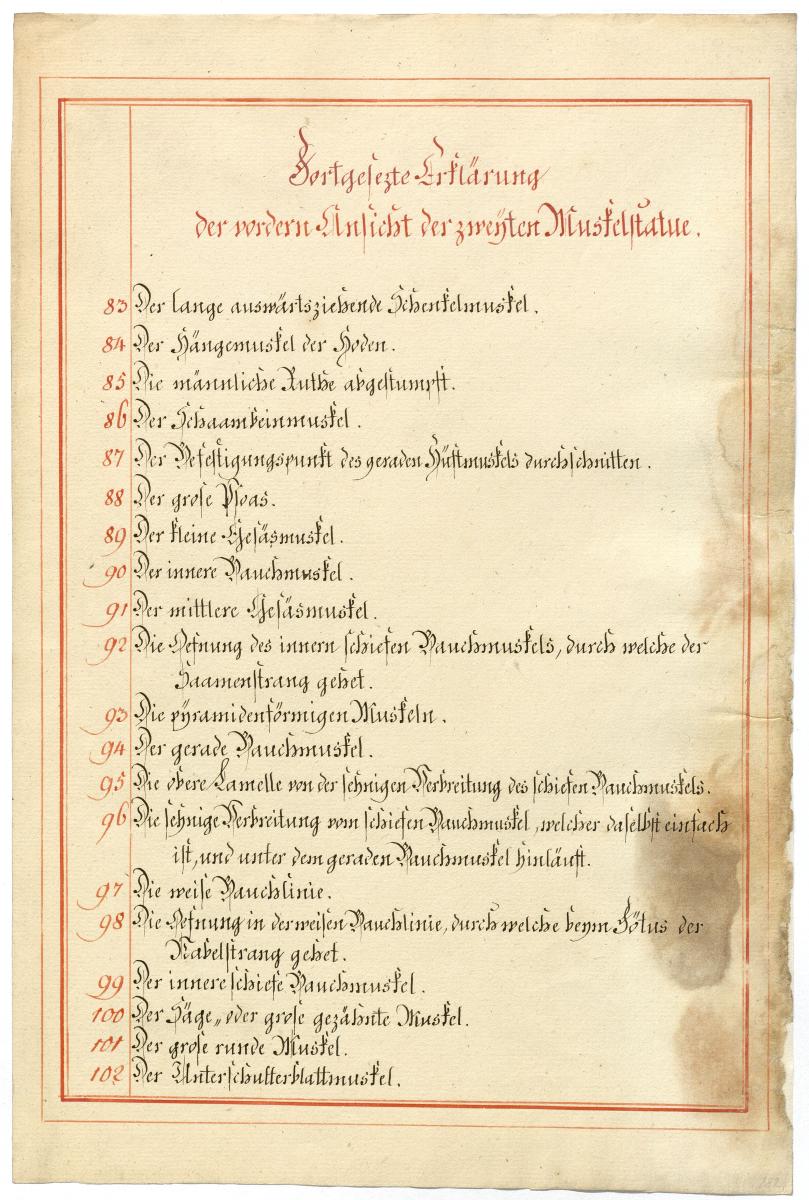 Fortgesezte Erklärung
der vordern Ansicht der zweÿten Muskelstatue.
83 Der lange auswärtsziehende Schenkelmuskel.
84 Der Hängemuskel der Hoden.
85 Die männliche Ruthe abgestumpft.
86 Der Schaambeinmuskel.
87 Der Befestigungspunkt des geraden Hüftmuskels durchschnitten.
88 Der grose Psoas.
89 Der kleine Gesäsmuskel.
90 Der innere Bauchmuskel.
91 Der mittlere Gesäsmuskel.
92 Die Oefnung des innern schiefen Bauchmuskels, durch welche der
Saamenstrang gehet.
93 Die pÿramidenförmigen Muskeln.
94 Der gerade Bauchmuskel.
95 Die obere Lamelle von der sehnigen Verbreitung des schiefen Bauchmuskels.
96 Die sehnige Verbreitung vom schiefen Bauchmuskel, welcher daselbst einfach
ist, und unter dem geraden Bauchmuskel hinläuft.
97 Die weise Bauchlinie.
98 Die Oefnung in der weisen Bauchlinie, durch welche beym Fötus der
Nabelstrang gehet.
99 Der innere schiefe Bauchmuskel.
100 Der Säge„ oder grose gezähnte Muskel.
101 Der grose runde Muskel.
102 Der Unterschulterblattmuskel.